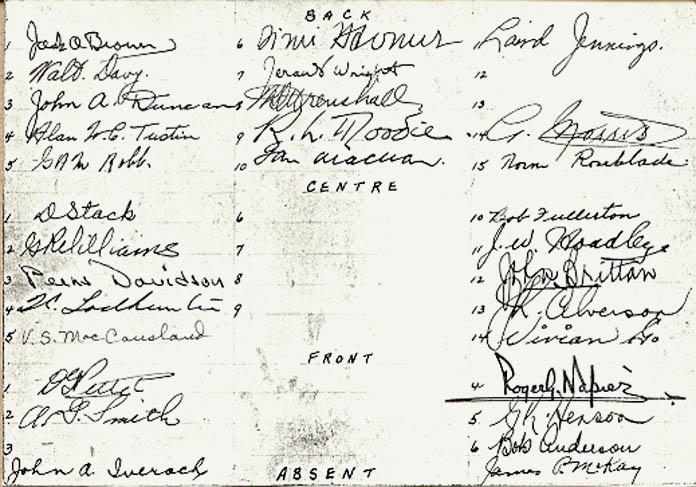 BACK
1 Jack A Brown
2 Walt. Davy.
3 John A. Duncan
4 Alan W. C. Tustin
5 G A M Robb.
6
7 Jerauld Wright
8 Wrenshall
9 R. L. Moodie
10 Ian
11 Laird Jennings.
12
13
14 G. Morris
15 Norm Roseblade
CENTRE
1 D Stack
2 G R Williams
3 Davidson
4
5 V. S. MacCausland
6
7
8
9
10 Bob Fullerton
11 J. W. Hoadley
12 John Brittan
13 K. Alverson
14 Vivian Lo
FRONT
1 D
2 A. G. Smith
3
John A. Iverach
4 Roger G. Napier
5 G. R. Henson
6 Bob Anderson
James P. McKay
ABSENT